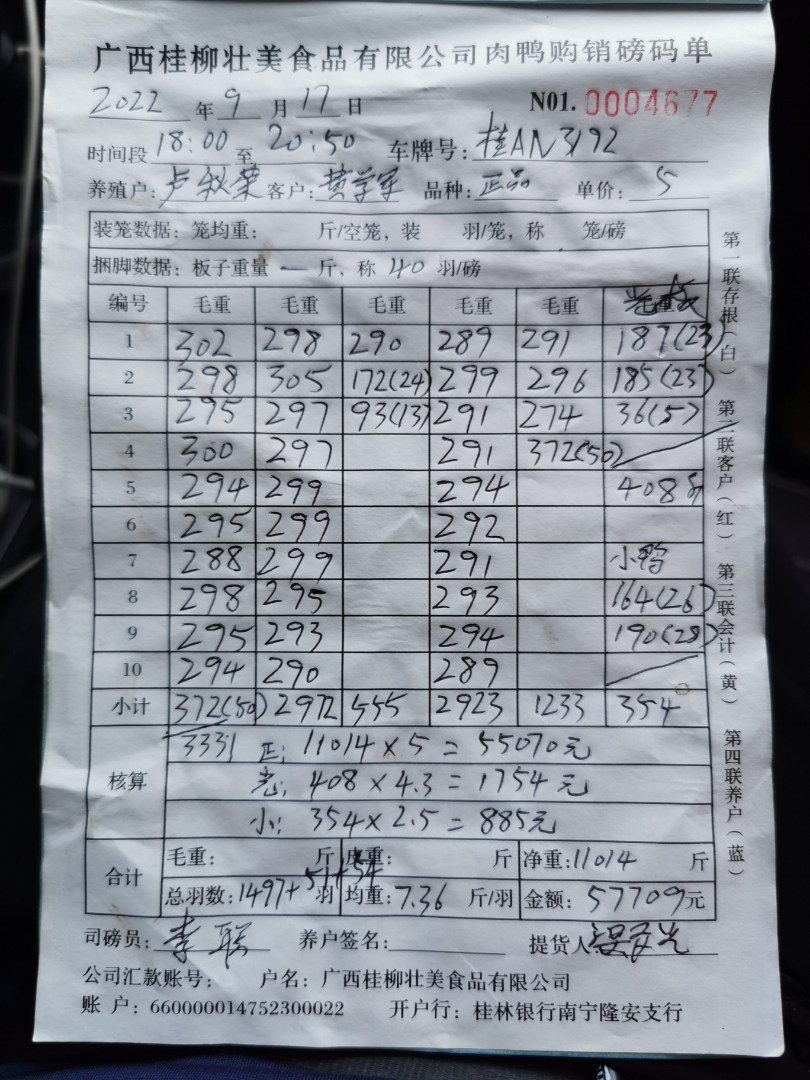 广西桂柳壮美食品有限公司肉鸭购销磅码单
2022 年 9 月 17 日 N01. 0004677
时间段 18:00 至 20:50 车牌号: 桂AN3192
养殖户: 卢秋荣 客户: 黄学军 品种: 正品 单价: 5
装笼数据: 笼均重: 斤/空笼, 装 羽/笼, 称 笼/磅
捆脚数据: 板子重量 — 斤, 称 40 羽/磅
编号 毛重 毛重 毛重 毛重 毛重
1 302 298 290 289 291 187(23)
2 298 305 172(24) 299 296 185(23)
3 295 297 93(13) 291 274 36(5)
4 300 297 291 372(50)
5 294 299 294 408斤
6 295 299 292
7 288 299 291 小鸭
8 298 295 293 164(26)
9 295 293 294 190(28)
10 294 290 289
小计 372(50) 2972 555 2923 1233 354
核算 3331 正: 11014×5=55070元
光: 408×4.3=1754元
小: 354×2.5=885元
合计 毛重: 斤 皮重: 斤 净重: 11014 斤
总羽数: 1497+51+54 羽 均重: 7.36 斤/羽 金额: 57709元
司磅员: 李联 养户签名: 提货人
公司汇款账号: 户名: 广西桂柳壮美食品有限公司
账 户: 660000014752300022 开户行: 桂林银行南宁隆安支行
第一联存根(白) 第二联客户(红) 第三联会计(黄) 第四联养户(蓝)